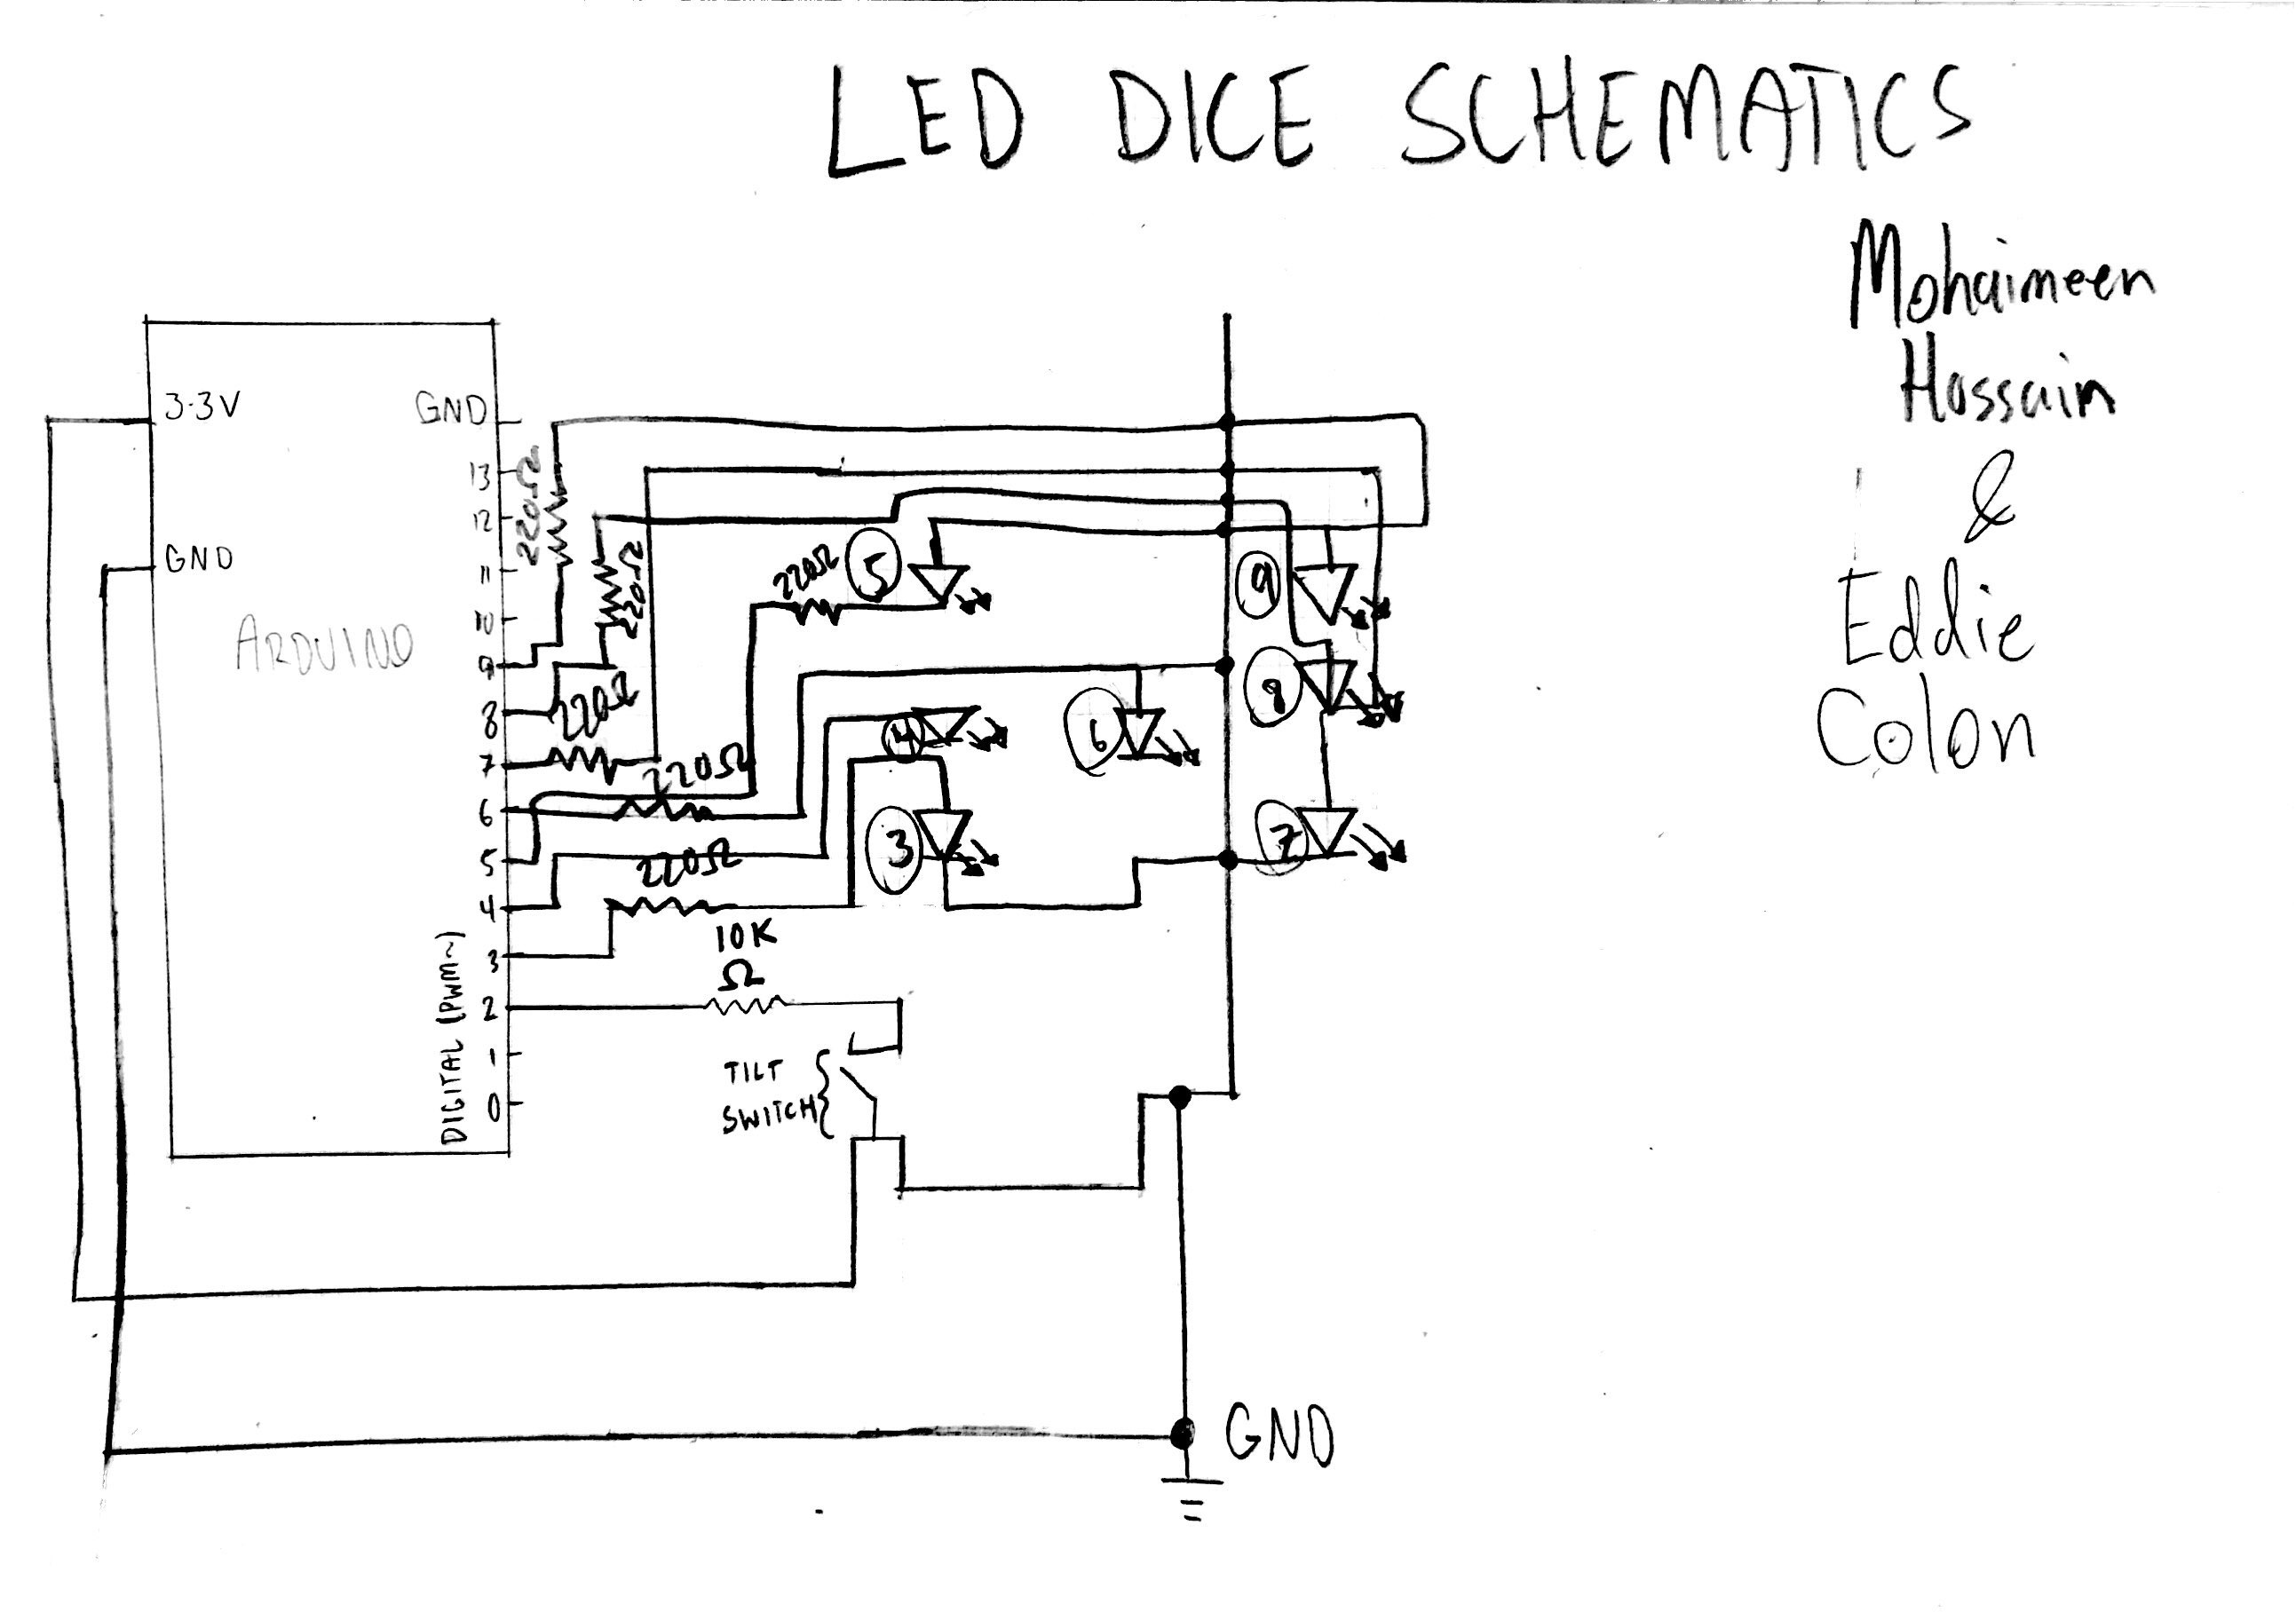 LED DICE SCHEMATICS
Mohaimeen
Hossain
&
Eddie
Colon
3.3V
GND
GND
ARDUINO
13
12
11
10
9
8
7
6
5
4
3
2
1
0
DIGITAL (PWM~)
220Ω
220Ω
220Ω
220Ω
220Ω
220Ω
10K
Ω
5
9
8
4
6
3
7
TILT
SWITCH
GND